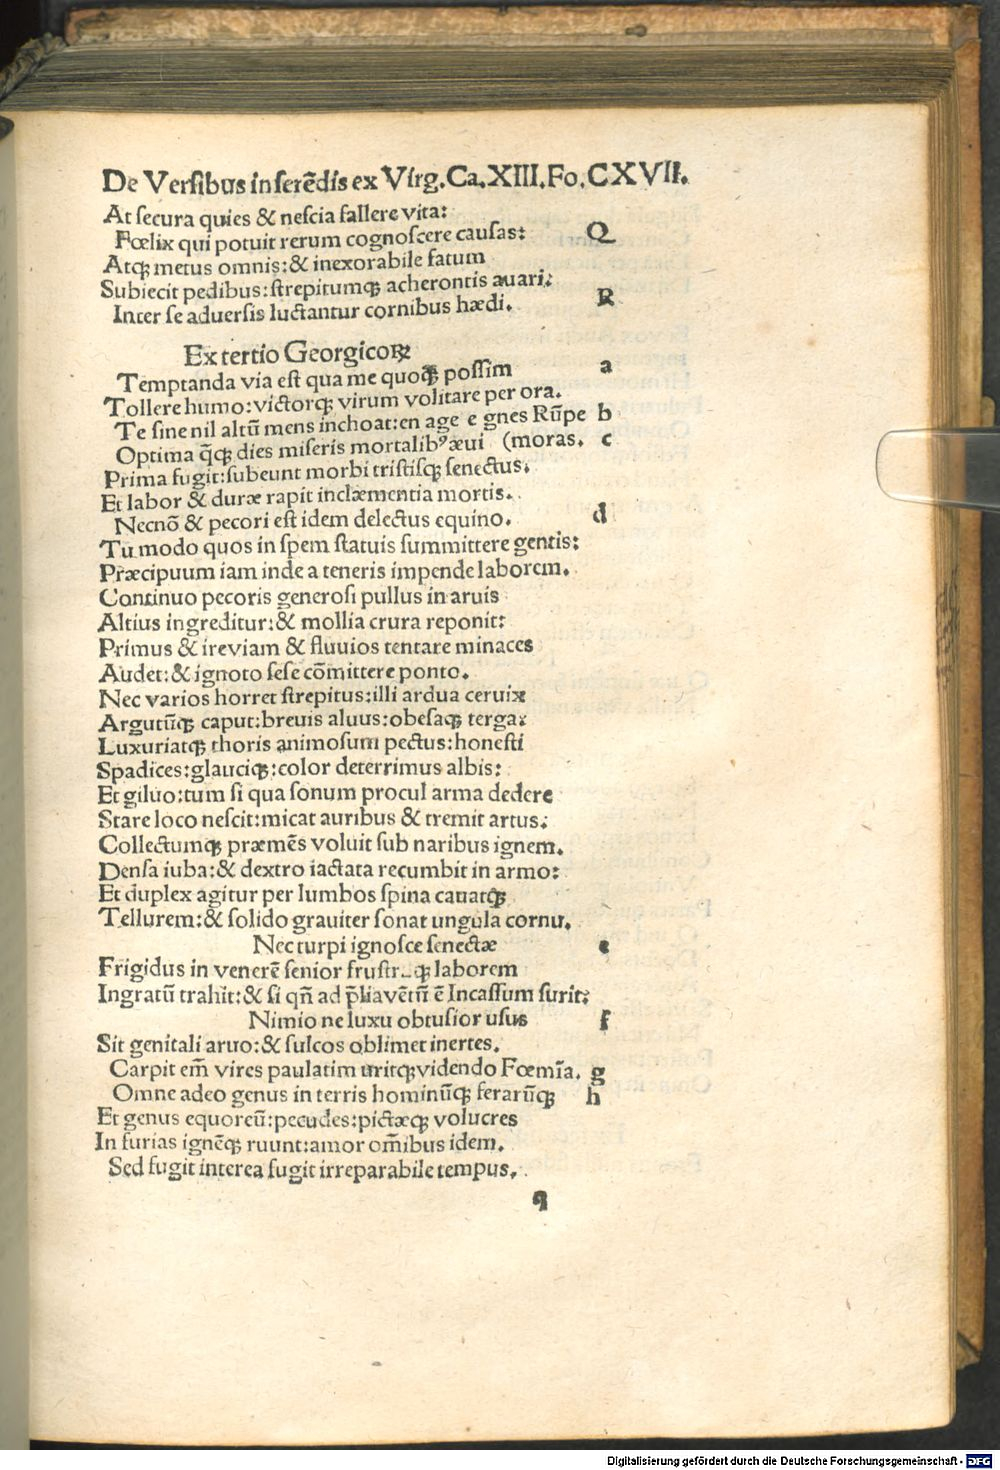 De Versibus inserēdis ex Virg. Ca. XIII. Fo. CXVII.
At secura quies & nescia fallere vita:
Fœlix qui potuit rerum cognoscere causas: Q
Atqꝫ metus omnis: & inexorabile fatum
Subiecit pedibus: strepitumqꝫ acherontis auari:
Inter se aduersis luctantur cornibus hædi. R
Ex tertio Georgicoꝝ
Temptanda via est qua me quoqꝫ possim a
Tollere humo: victorqꝫ virum volitare per ora.
Te sine nil altū mens inchoat: en age e gnes Rūpe b
Optima q̄qꝫ dies miseris mortalibꝰ æui (moras. c
Prima fugit: subeunt morbi tristisqꝫ senectus.
Et labor & duræ rapit inclæmentia mortis.
Necnō & pecori est idem delectus equino. d
Tu modo quos in spem statuis summittere gentis:
Præcipuum iam inde a teneris impende laborem.
Continuo pecoris generosi pullus in aruis
Altius ingreditur: & mollia crura reponit:
Primus & ire viam & fluuios tentare minaces
Audet: & ignoto sese cōmittere ponto.
Nec varios horret strepitus: illi ardua ceruix
Argutūqꝫ caput: breuis aluus: obesaqꝫ terga:
Luxuriatqꝫ thoris animosum pectus: honesti
Spadices: glauciqꝫ: color deterrimus albis:
Et giluo: tum si qua sonum procul arma dedere
Stare loco nescit: micat auribus & tremit artus:
Collectumqꝫ præmēs voluit sub naribus ignem.
Densa iuba: & dextro iactata recumbit in armo:
Et duplex agitur per lumbos spina cauatqꝫ
Tellurem: & solido grauiter sonat ungula cornu.
Nec turpi ignosce senectæ e
Frigidus in venerē senior qꝫ laborem
Ingratū trahit: & si qn̄ ad p̄lia vētū ē Incassum furit:
Nimio ne luxu obtusior usus f
Sit genitali aruo: & sulcos oblimet inertes.
Carpit em̄ vires paulatim uritqꝫ videndo Fœmīa. g
Omne adeo genus in terris hominūqꝫ ferarūqꝫ h
Et genus equoreū: pecudes: pictæqꝫ volucres
In furias ignēqꝫ ruunt: amor om̄ibus idem.
Sed fugit interea fugit irreparabile tempus.
q
Digitalisierung gefördert durch die Deutsche Forschungsgemeinschaft - DFG